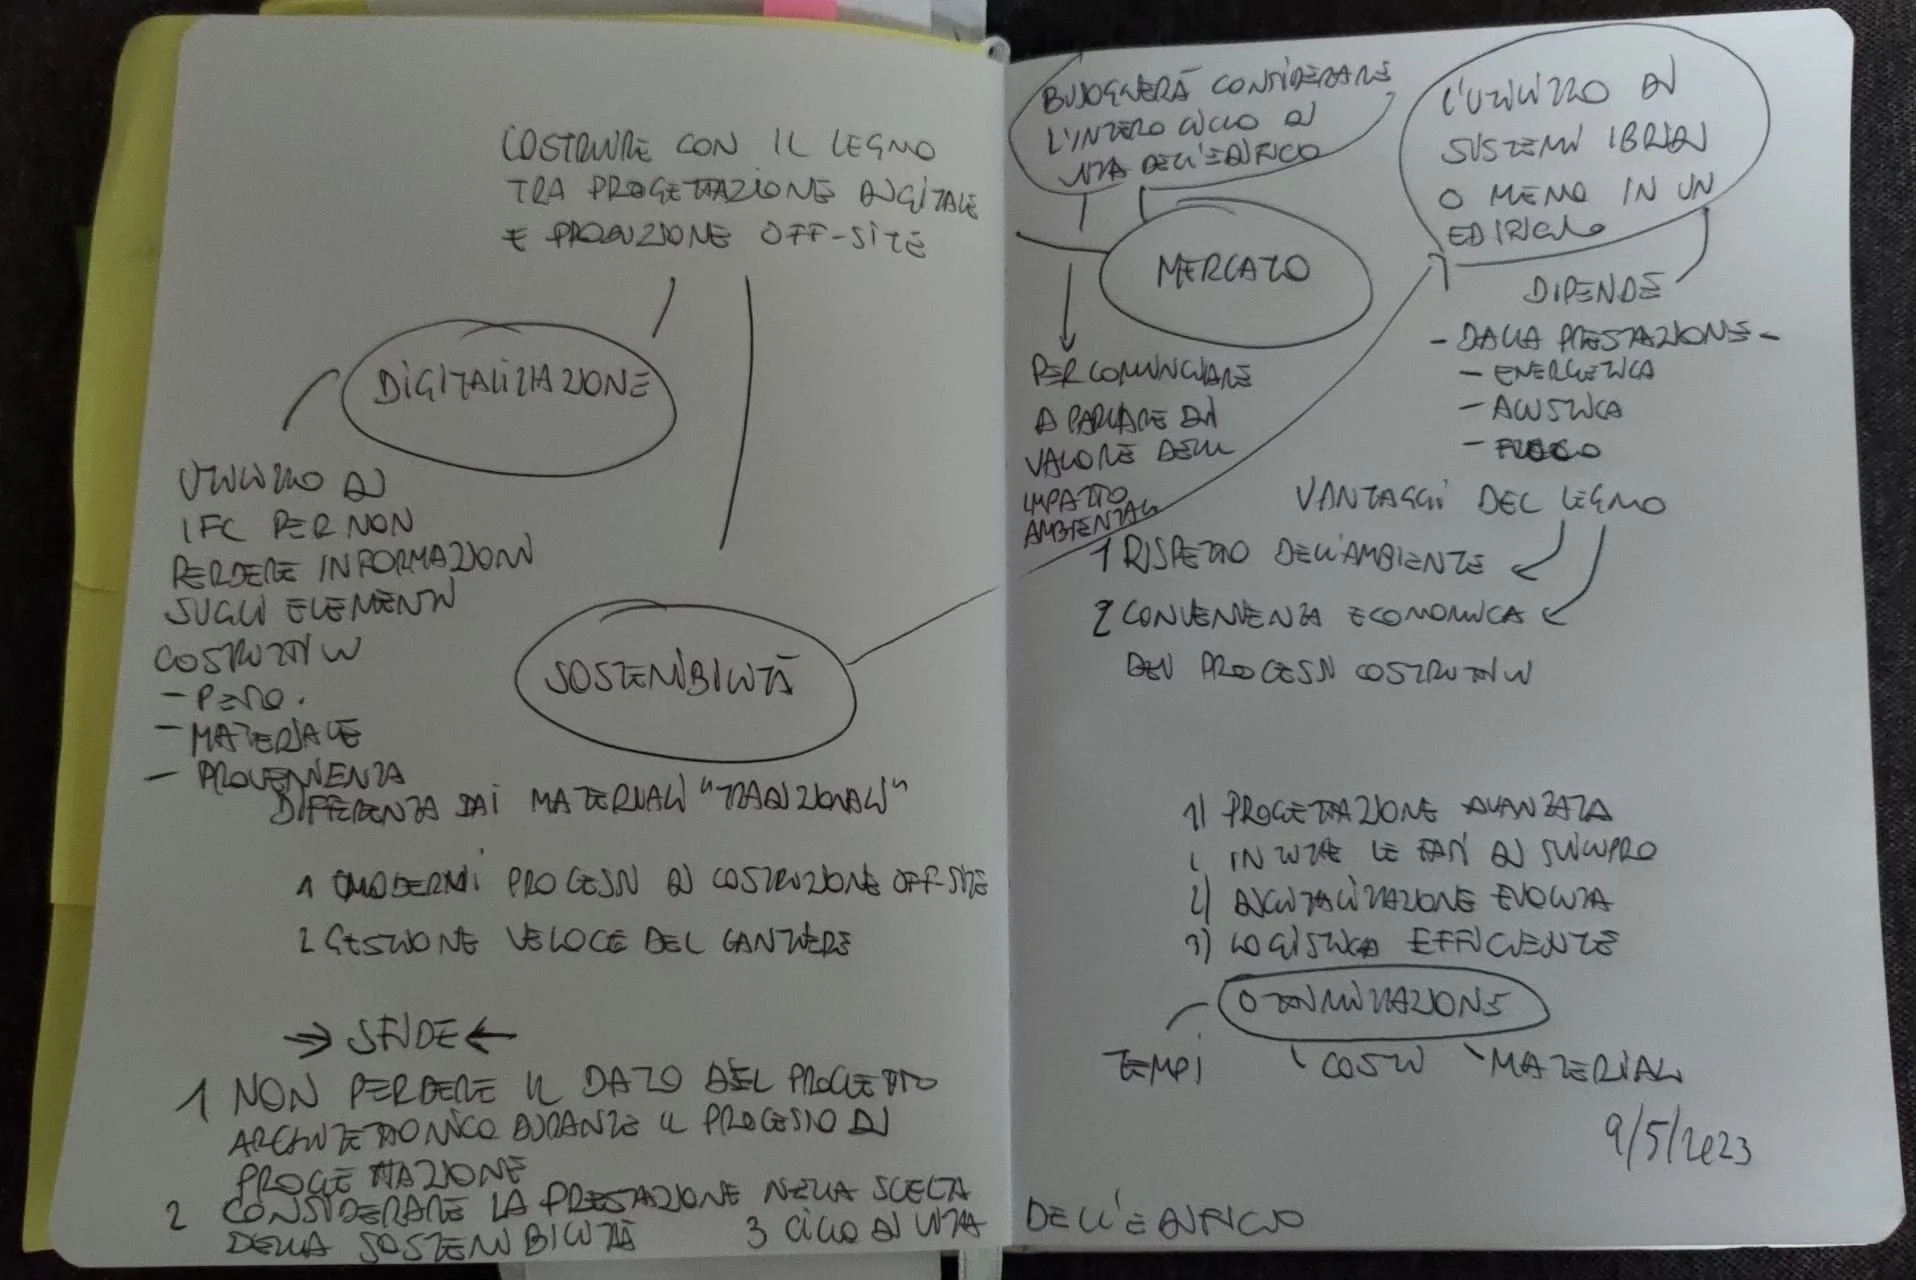 COSTRUIRE CON IL LEGNO
TRA PROGETTAZIONE DIGITALE
E PRODUZIONE OFF-SITE
DIGITALIZZAZIONE
UTILIZZO DI
IFC PER NON
PERDERE INFORMAZIONI
SUGLI ELEMENTI
COSTRUTTIVI
- PESO.
- MATERIALE
- PROVENIENZA
SOSTENIBILITÀ
DIFFERENZA DAI MATERIALI "TRADIZIONALI"
1 MODERNI PROCESSI DI COSTRUZIONE OFF-SITE
2 GESTIONE VELOCE DEL CANTIERE
⇒ SFIDE ←
1 NON PERDERE IL DATO DEL PROGETTO
ARCHITETTONICO DURANTE IL PROCESSO DI
PROGETTAZIONE
2 CONSIDERARE LA PRESTAZIONE NELLA SCELTA
DELLA SOSTENIBILITÀ
3 CICLO DI VITA DELL'EDIFICIO
BISOGNERÀ CONSIDERARE
L'INTERO CICLO DI
VITA DELL'EDIFICIO
MERCATO
PER COMINCIARE
A PARLARE DI
VALORE DELL
IMPATTO
AMBIENTALE
L'UTILIZZO DI
SISTEMI IBRIDI
O MENO IN UN
EDIFICIO
DIPENDE
- DALLA PRESTAZIONE -
- ENERGETICA
- ACUSTICA
- FUOCO
VANTAGGI DEL LEGNO
1 RISPETTO DELL'AMBIENTE
2 CONVENIENZA ECONOMICA
DEI PROCESSI COSTRUTTIVI
1) PROGETTAZIONE AVANZATA
IN TUTTE LE FASI DI SVILUPPO
2) DIGITALIZZAZIONE EVOLUTA
3) LOGISTICA EFFICIENTE
OTTIMIZZAZIONE
TEMPI COSTI MATERIALI
9/5/2023